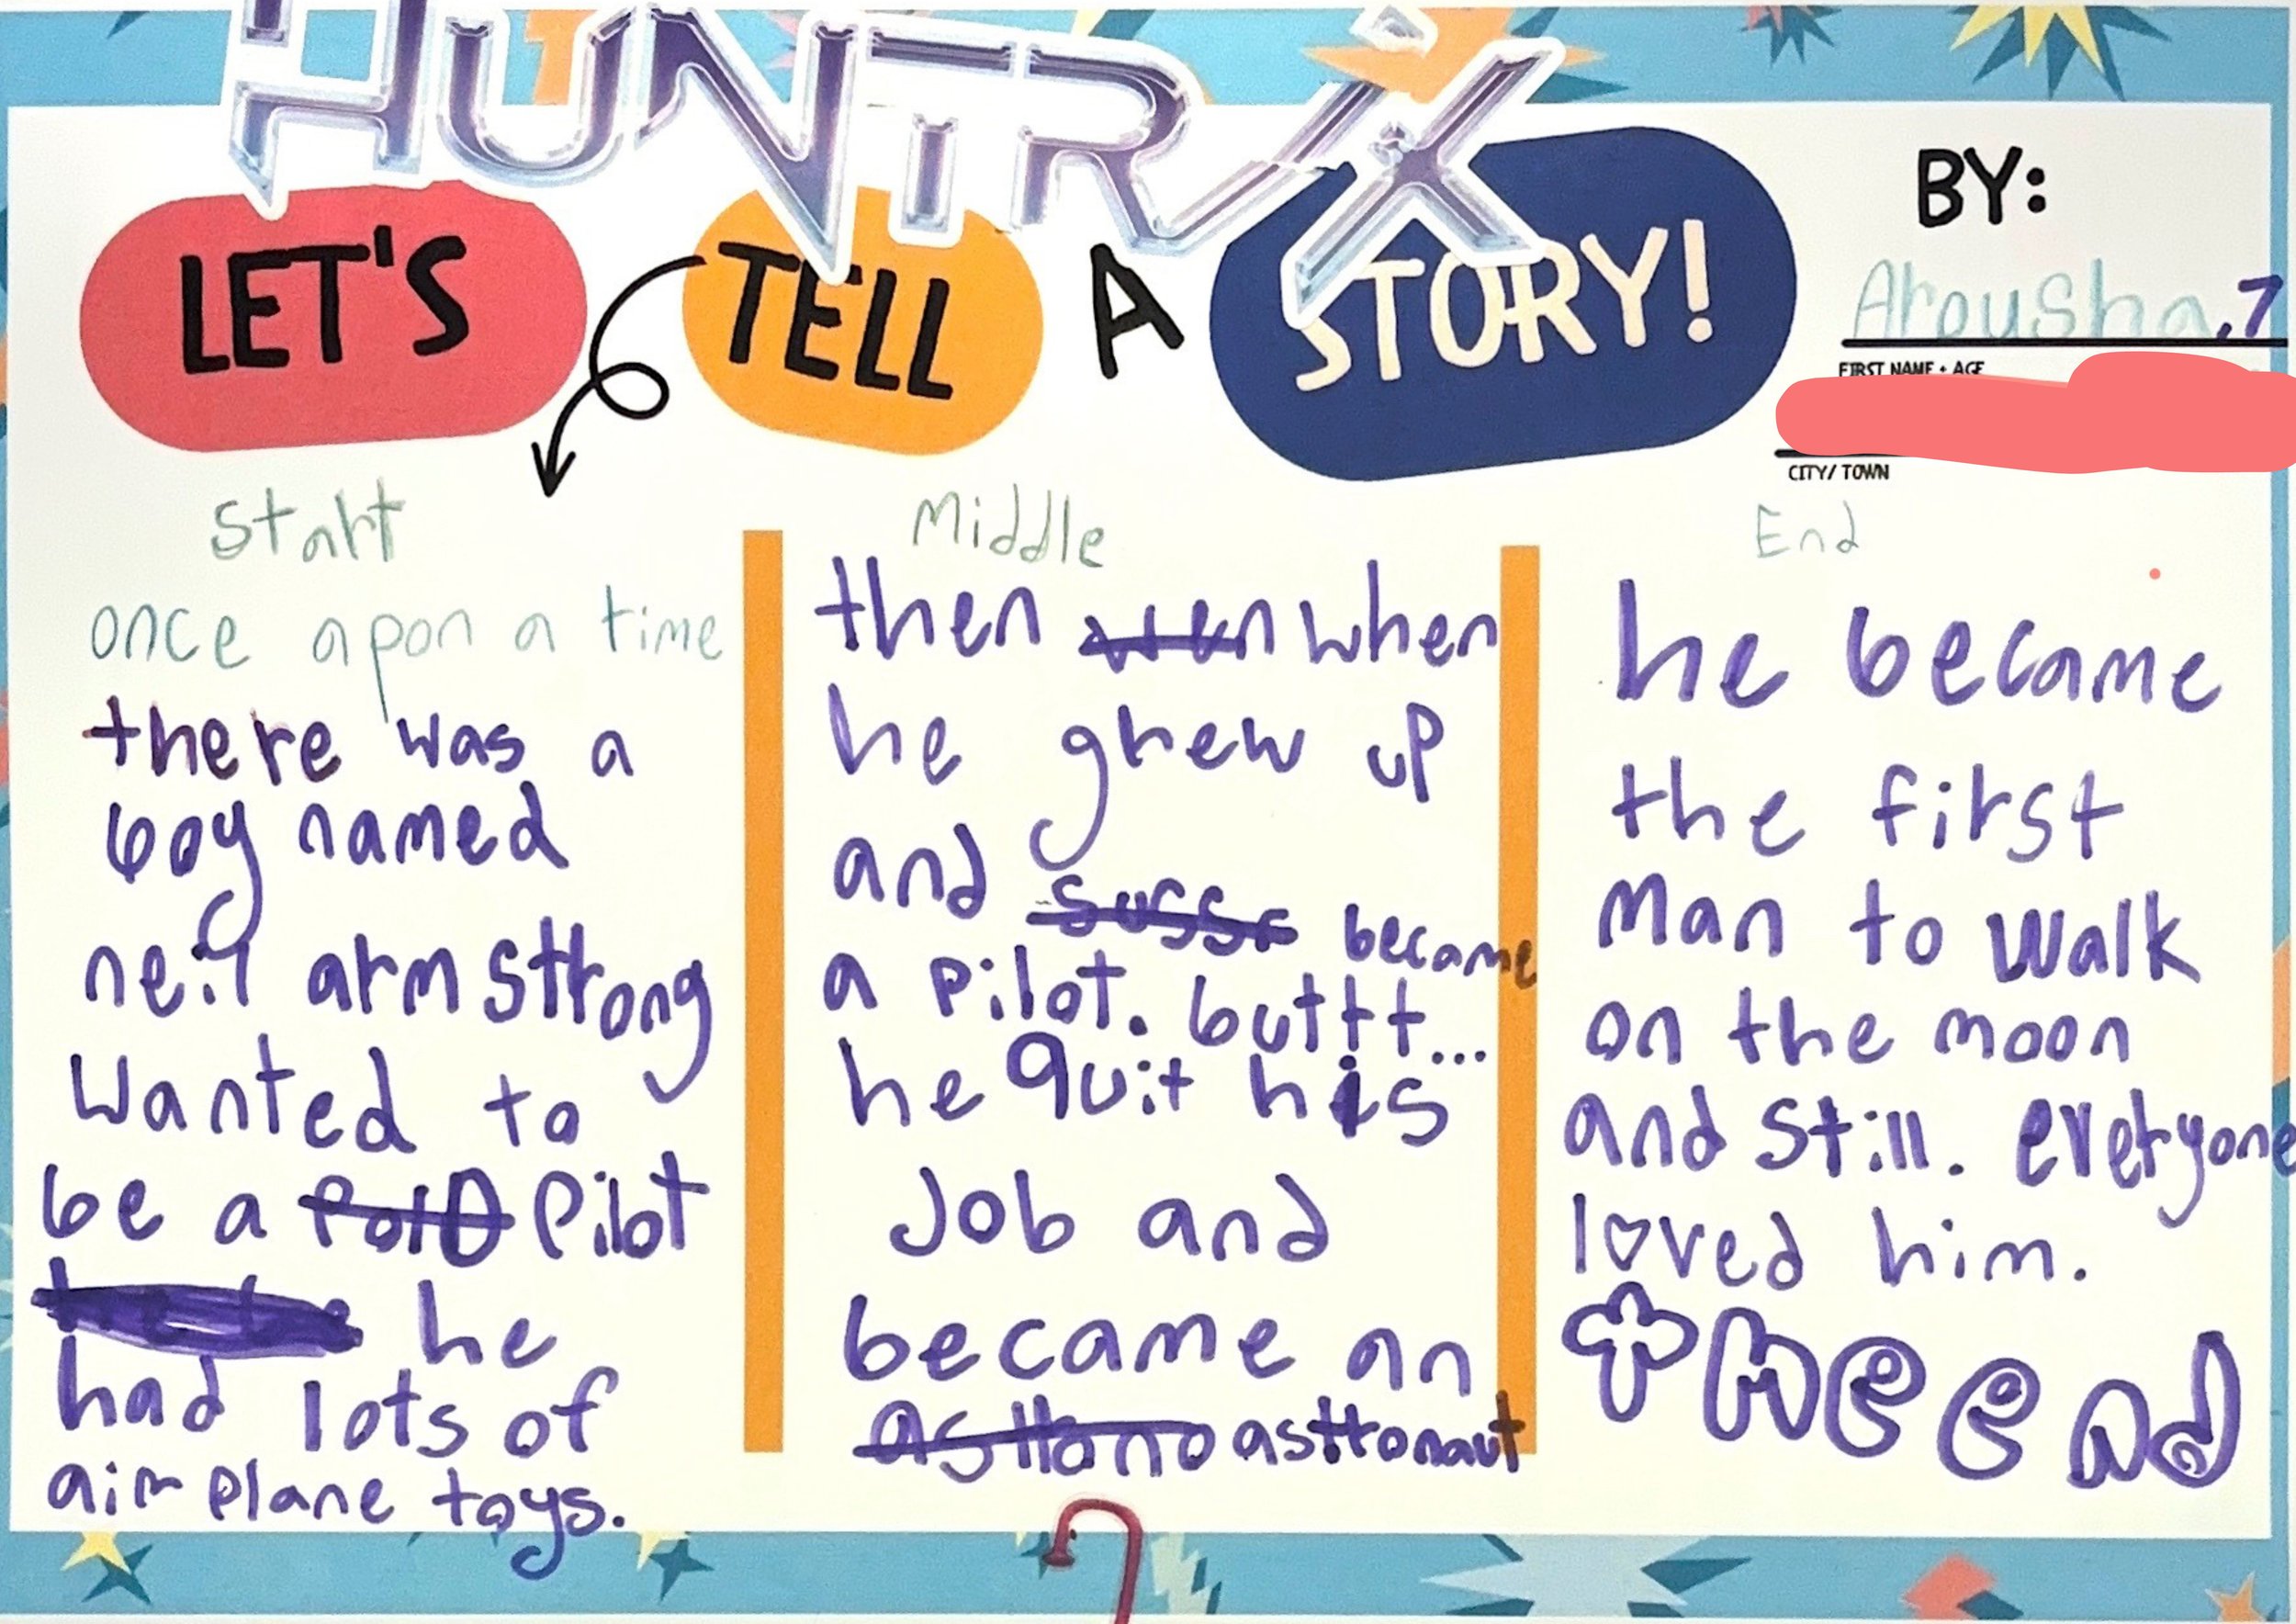 HUNTR/X
LET'S TELL A STORY!
BY:
Arousha, 7
FIRST NAME + AGE
CITY/ TOWN
Start
once apon a time
there was a
boy named
neil armstrong
Wanted to
be a Pilot
he
had lots of
air plane toys.
Middle
then when
he grew up
and became
a Pilot. buttt...
he quit his
Job and
became an
astronaut
End
he became
the first
Man to Walk
on the moon
and still. everyone
loved him.
The end